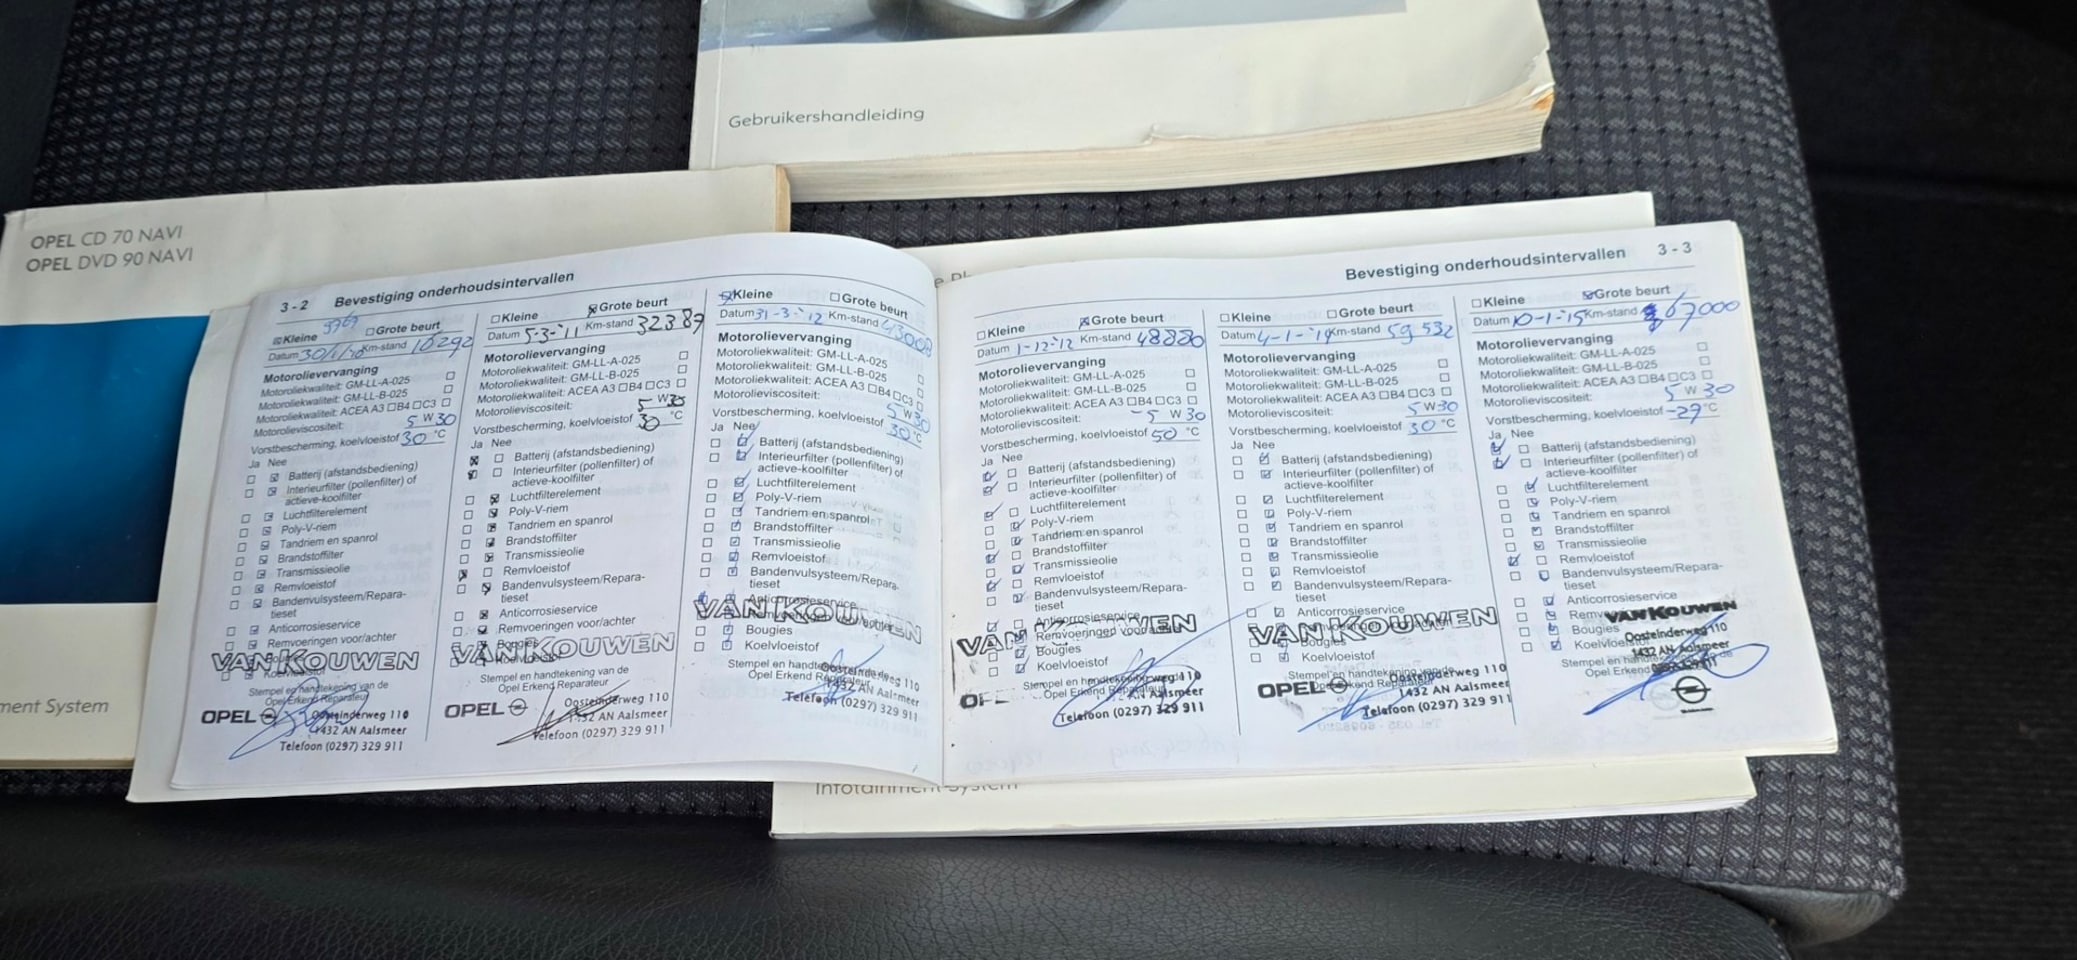 Gebruikershandleiding
OPEL CD 70 NAVI
OPEL DVD 90 NAVI
ment System
Infotainment System
3 - 2 Bevestiging onderhoudsintervallen
Kleine Grote beurt
Datum Km-stand 16292
Motorolievervanging
Motoroliekwaliteit: GM-LL-A-025
Motoroliekwaliteit: GM-LL-B-025
Motoroliekwaliteit: ACEA A3 B4 C3
Motorolieviscositeit: 5 W 30
Vorstbescherming, koelvloeistof 30 °C
Ja Nee
Batterij (afstandsbediening)
Interieurfilter (pollenfilter) of
actieve-koolfilter
Luchtfilterelement
Poly-V-riem
Tandriem en spanrol
Brandstoffilter
Transmissieolie
Remvloeistof
Bandenvulsysteem/Repara-
tieset
Anticorrosieservice
Remvoeringen voor/achter
VAN KOUWEN
Koelvloeistof
Stempel en handtekening van de
Opel Erkend Reparateur
OPEL Oosteinderweg 110
1432 AN Aalsmeer
Telefoon (0297) 329 911
Kleine Grote beurt
Datum 5-3-'11 Km-stand 32387
Motorolievervanging
Motoroliekwaliteit: GM-LL-A-025
Motoroliekwaliteit: GM-LL-B-025
Motoroliekwaliteit: ACEA A3 B4 C3
Motorolieviscositeit: 5 W 30
Vorstbescherming, koelvloeistof 30 °C
Ja Nee
Batterij (afstandsbediening)
Interieurfilter (pollenfilter) of
actieve-koolfilter
Luchtfilterelement
Poly-V-riem
Tandriem en spanrol
Brandstoffilter
Transmissieolie
Remvloeistof
Bandenvulsysteem/Repara-
tieset
Anticorrosieservice
Remvoeringen voor/achter
VAN KOUWEN
Stempel en handtekening van de
Opel Erkend Reparateur
OPEL Oosteinderweg 110
1432 AN Aalsmeer
Telefoon (0297) 329 911
Kleine Grote beurt
Datum 31-3-'12 Km-stand 43008
Motorolievervanging
Motoroliekwaliteit: GM-LL-A-025
Motoroliekwaliteit: GM-LL-B-025
Motoroliekwaliteit: ACEA A3 B4 C3
Motorolieviscositeit: 5 W 30
Vorstbescherming, koelvloeistof 30 °C
Ja Nee
Batterij (afstandsbediening)
Interieurfilter (pollenfilter) of
actieve-koolfilter
Luchtfilterelement
Poly-V-riem
Tandriem en spanrol
Brandstoffilter
Transmissieolie
Remvloeistof
Bandenvulsysteem/Repara-
tieset
Anticorrosieservice
VAN KOUWEN
Bougies
Koelvloeistof
Stempel en handtekening
Oosteinderweg 110
1432 AN Aalsmeer
Telefoon (0297) 329 911
Bevestiging onderhoudsintervallen 3 - 3
Kleine Grote beurt
Datum 1-12-'12 Km-stand 48880
Motorolievervanging
Motoroliekwaliteit: GM-LL-A-025
Motoroliekwaliteit: GM-LL-B-025
Motoroliekwaliteit: ACEA A3 B4 C3
Motorolieviscositeit: 5 W 30
Vorstbescherming, koelvloeistof 50 °C
Ja Nee
Batterij (afstandsbediening)
Interieurfilter (pollenfilter) of
actieve-koolfilter
Luchtfilterelement
Poly-V-riem
Tandriem en spanrol
Brandstoffilter
Transmissieolie
Remvloeistof
Bandenvulsysteem/Repara-
tieset
Anticorrosieservice
Remvoeringen
Bougies
Koelvloeistof
Aalsmeer
Telefoon (0297) 329 911
Kleine Grote beurt
Datum 4-1-'14 Km-stand 59532
Motorolievervanging
Motoroliekwaliteit: GM-LL-A-025
Motoroliekwaliteit: GM-LL-B-025
Motoroliekwaliteit: ACEA A3 B4 C3
Motorolieviscositeit: 5 W 30
Vorstbescherming, koelvloeistof 30 °C
Ja Nee
Batterij (afstandsbediening)
Interieurfilter (pollenfilter) of
actieve-koolfilter
Luchtfilterelement
Poly-V-riem
Tandriem en spanrol
Brandstoffilter
Transmissieolie
Remvloeistof
Bandenvulsysteem/Repara-
tieset
Anticorrosieservice
VAN KOUWEN
Bougies
Koelvloeistof
OPEL Oosteinderweg 110
1432 AN Aalsmeer
Telefoon (0297) 329 911
Kleine Grote beurt
Datum 10-1-'15 Km-stand 67000
Motorolievervanging
Motoroliekwaliteit: GM-LL-A-025
Motoroliekwaliteit: GM-LL-B-025
Motoroliekwaliteit: ACEA A3 B4 C3
Motorolieviscositeit: 5 W 30
Vorstbescherming, koelvloeistof -29 °C
Ja Nee
Batterij (afstandsbediening)
Interieurfilter (pollenfilter) of
actieve-koolfilter
Luchtfilterelement
Poly-V-riem
Tandriem en spanrol
Brandstoffilter
Transmissieolie
Remvloeistof
Bandenvulsysteem/Repara-
tieset
Anticorrosieservice
VAN KOUWEN
Bougies Oosteinderweg 110
Koelvloeistof 1432 AN Aalsmeer
Opel Erkend